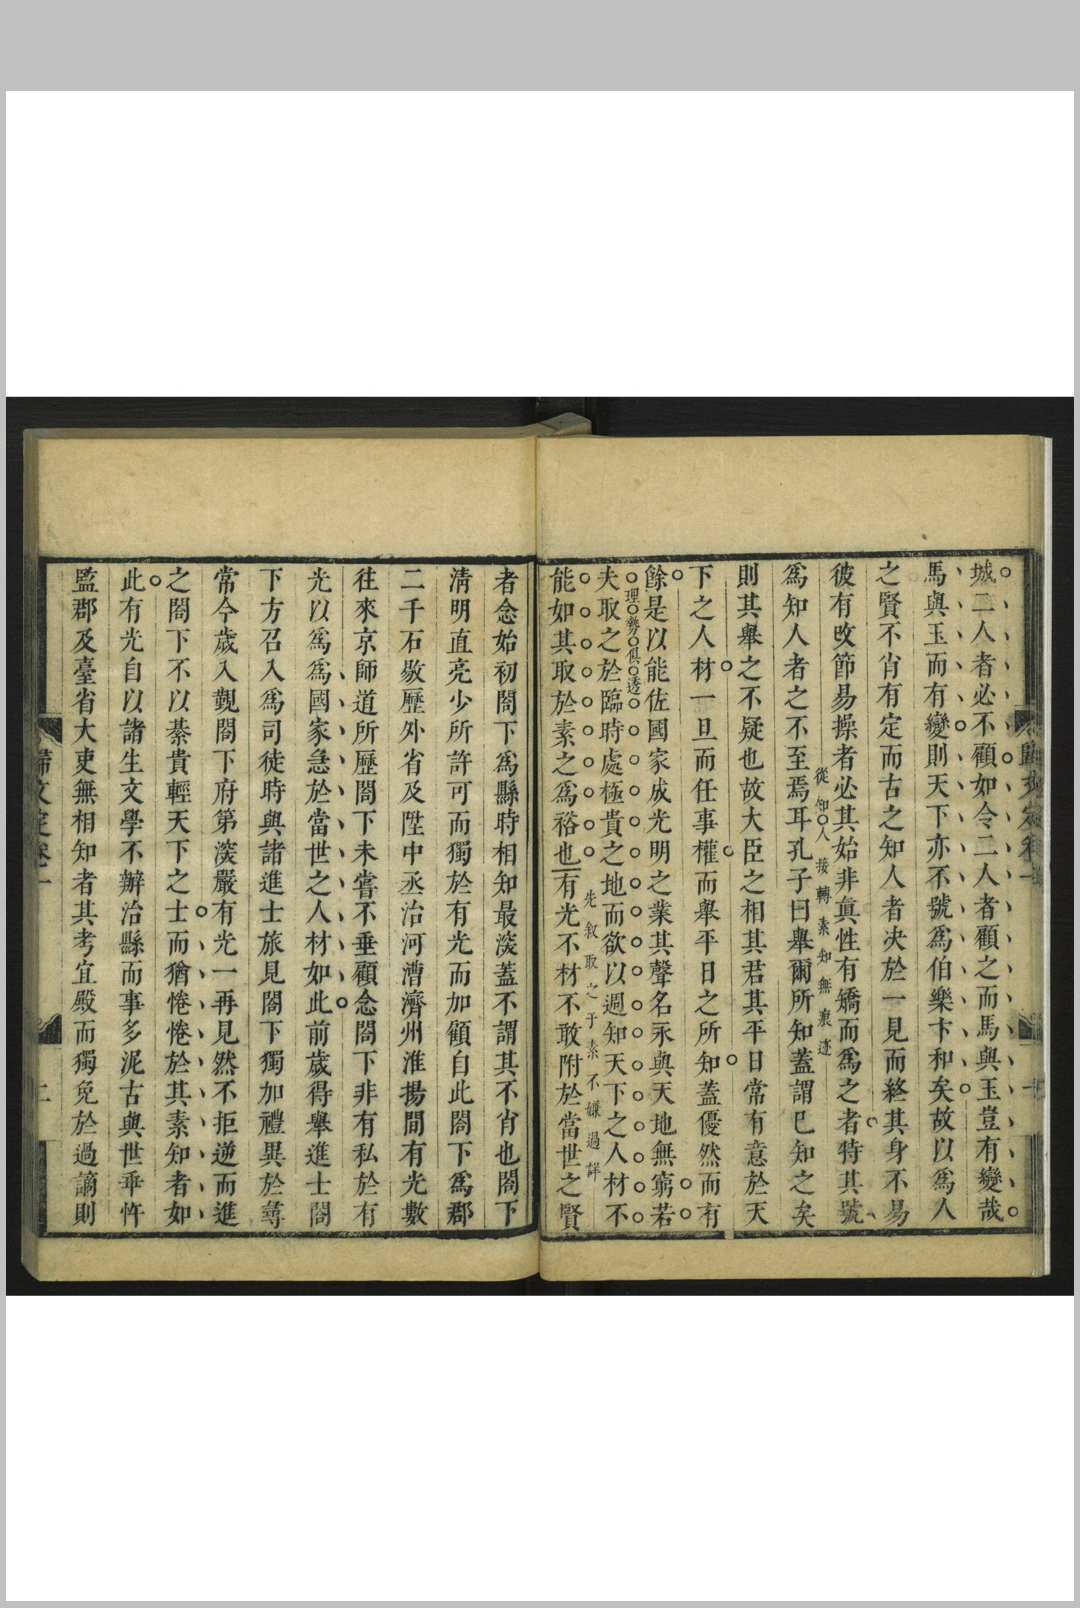 城二人者必不顧如令二人者顧之而馬與玉豈有變哉
馬與玉而有變則天下亦不號爲伯樂卞和矣故以爲人
之賢不肖有定而古之知人者决於一見而終其身不易
彼有改節易操者必其始非眞性有矯而爲之者特其號
從知人接轉素知無痕迹
爲知人者之不至焉耳孔子曰舉爾所知蓋謂已知之矣
則其舉之不疑也故大臣之相其君其平日常有意於天
下之人材一旦而任事權而舉平日之所知蓋優然而有
餘是以能佐國家成光明之業其聲名永與天地無窮若
理勢俱透
夫取之於臨時處極貴之地而欲以週知天下之人材不
先叙取之于素不嫌過詳
能如其取於素之爲裕也有光不材不敢附於當世之賢
者念始初閤下爲縣時相知最深蓋不謂其不肖也閤下
清明直亮少所許可而獨於有光而加顧自此閤下爲郡
二千石歇歷外省及陞中丞治河漕濟州淮揚間有光數
往來京師道所歷閤下未嘗不垂顧念閤下非有私於有
光以爲爲國家急於當世之人材如此前歲得舉進士閤
下方召入爲司徒時與諸進士旅見閤下獨加禮異於尋
常今歲入覲閤下府第深嚴有光一再見然不拒逆而進
之閤下不以綦貴輕天下之士而猶惓惓於其素知者如
此有光自以諸生文學不辦治縣而事多泥古與世乖忤
監郡及臺省大吏無相知者其考宜殿而獨免於過謫則
歸文定卷一
上